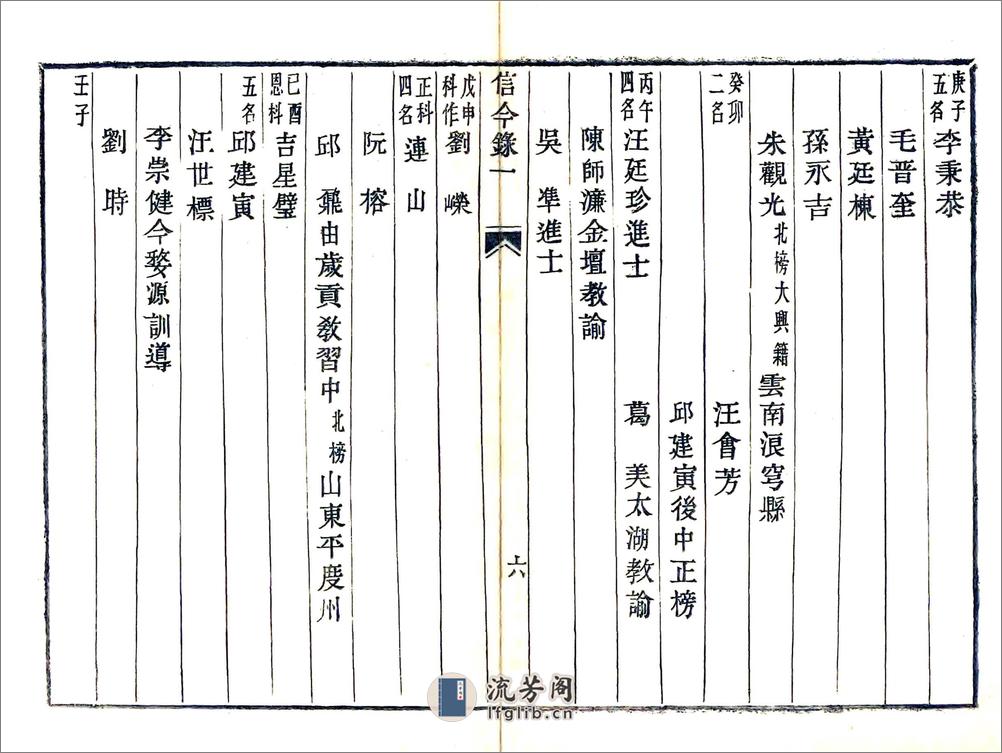 庚子五名 李秉恭
毛晉奎
黃廷棟
孫永吉
朱觀光 北榜大興籍 雲南浪穹縣
癸卯二名 汪會芳
邱建寅後中正榜
丙午四名 汪廷珍進士 葛美太湖教諭
陳師濂金壇教諭
吳凖進士
信今錄一
六
戊申科作正科四名 劉嶸
連山
阮榕
邱鼐由歲貢教習中北榜山東平度州
己酉恩科五名 吉星璧
邱建寅
汪世標
李崇健今婺源訓導
劉時
壬子
流芳阁
lfglib.cn